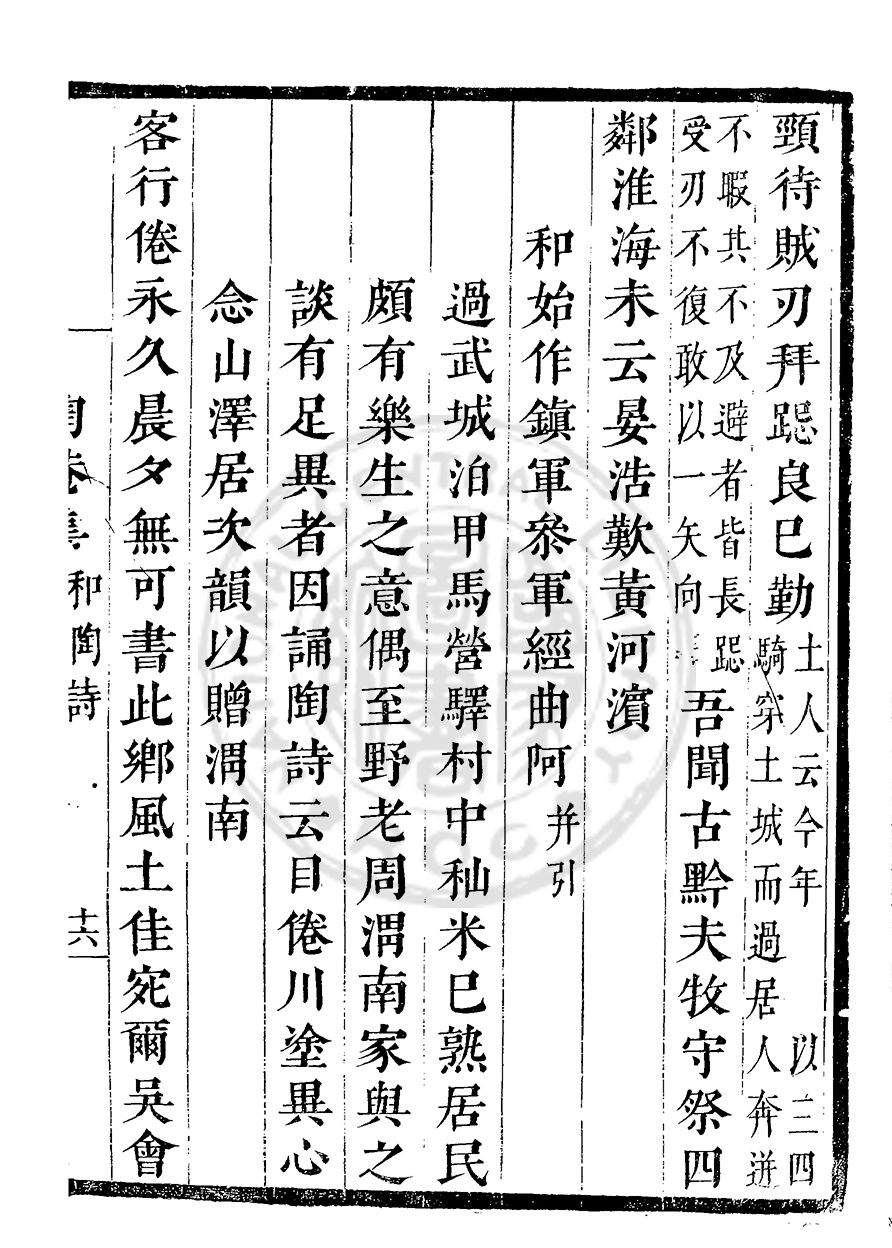 頸待賊刃拜跽良已勤土人云今年以三四騎穿土城而過居人奔迸
不暇其不及避者皆長跽受刃不復敢以一矢向吾聞古黔夫牧守祭四
鄰淮海未云晏浩歎黃河濱
和始作鎮軍叅軍經曲阿并引
過武城泊甲馬營驛村中秈米已熟居民
頗有樂生之意偶至野老周渭南家與之
談有足異者因誦陶詩云目倦川塗異心
念山澤居次韻以贈渭南
客行倦永久晨夕無可書此鄉風土佳宛爾吳會
陶菴集和陶詩
十六